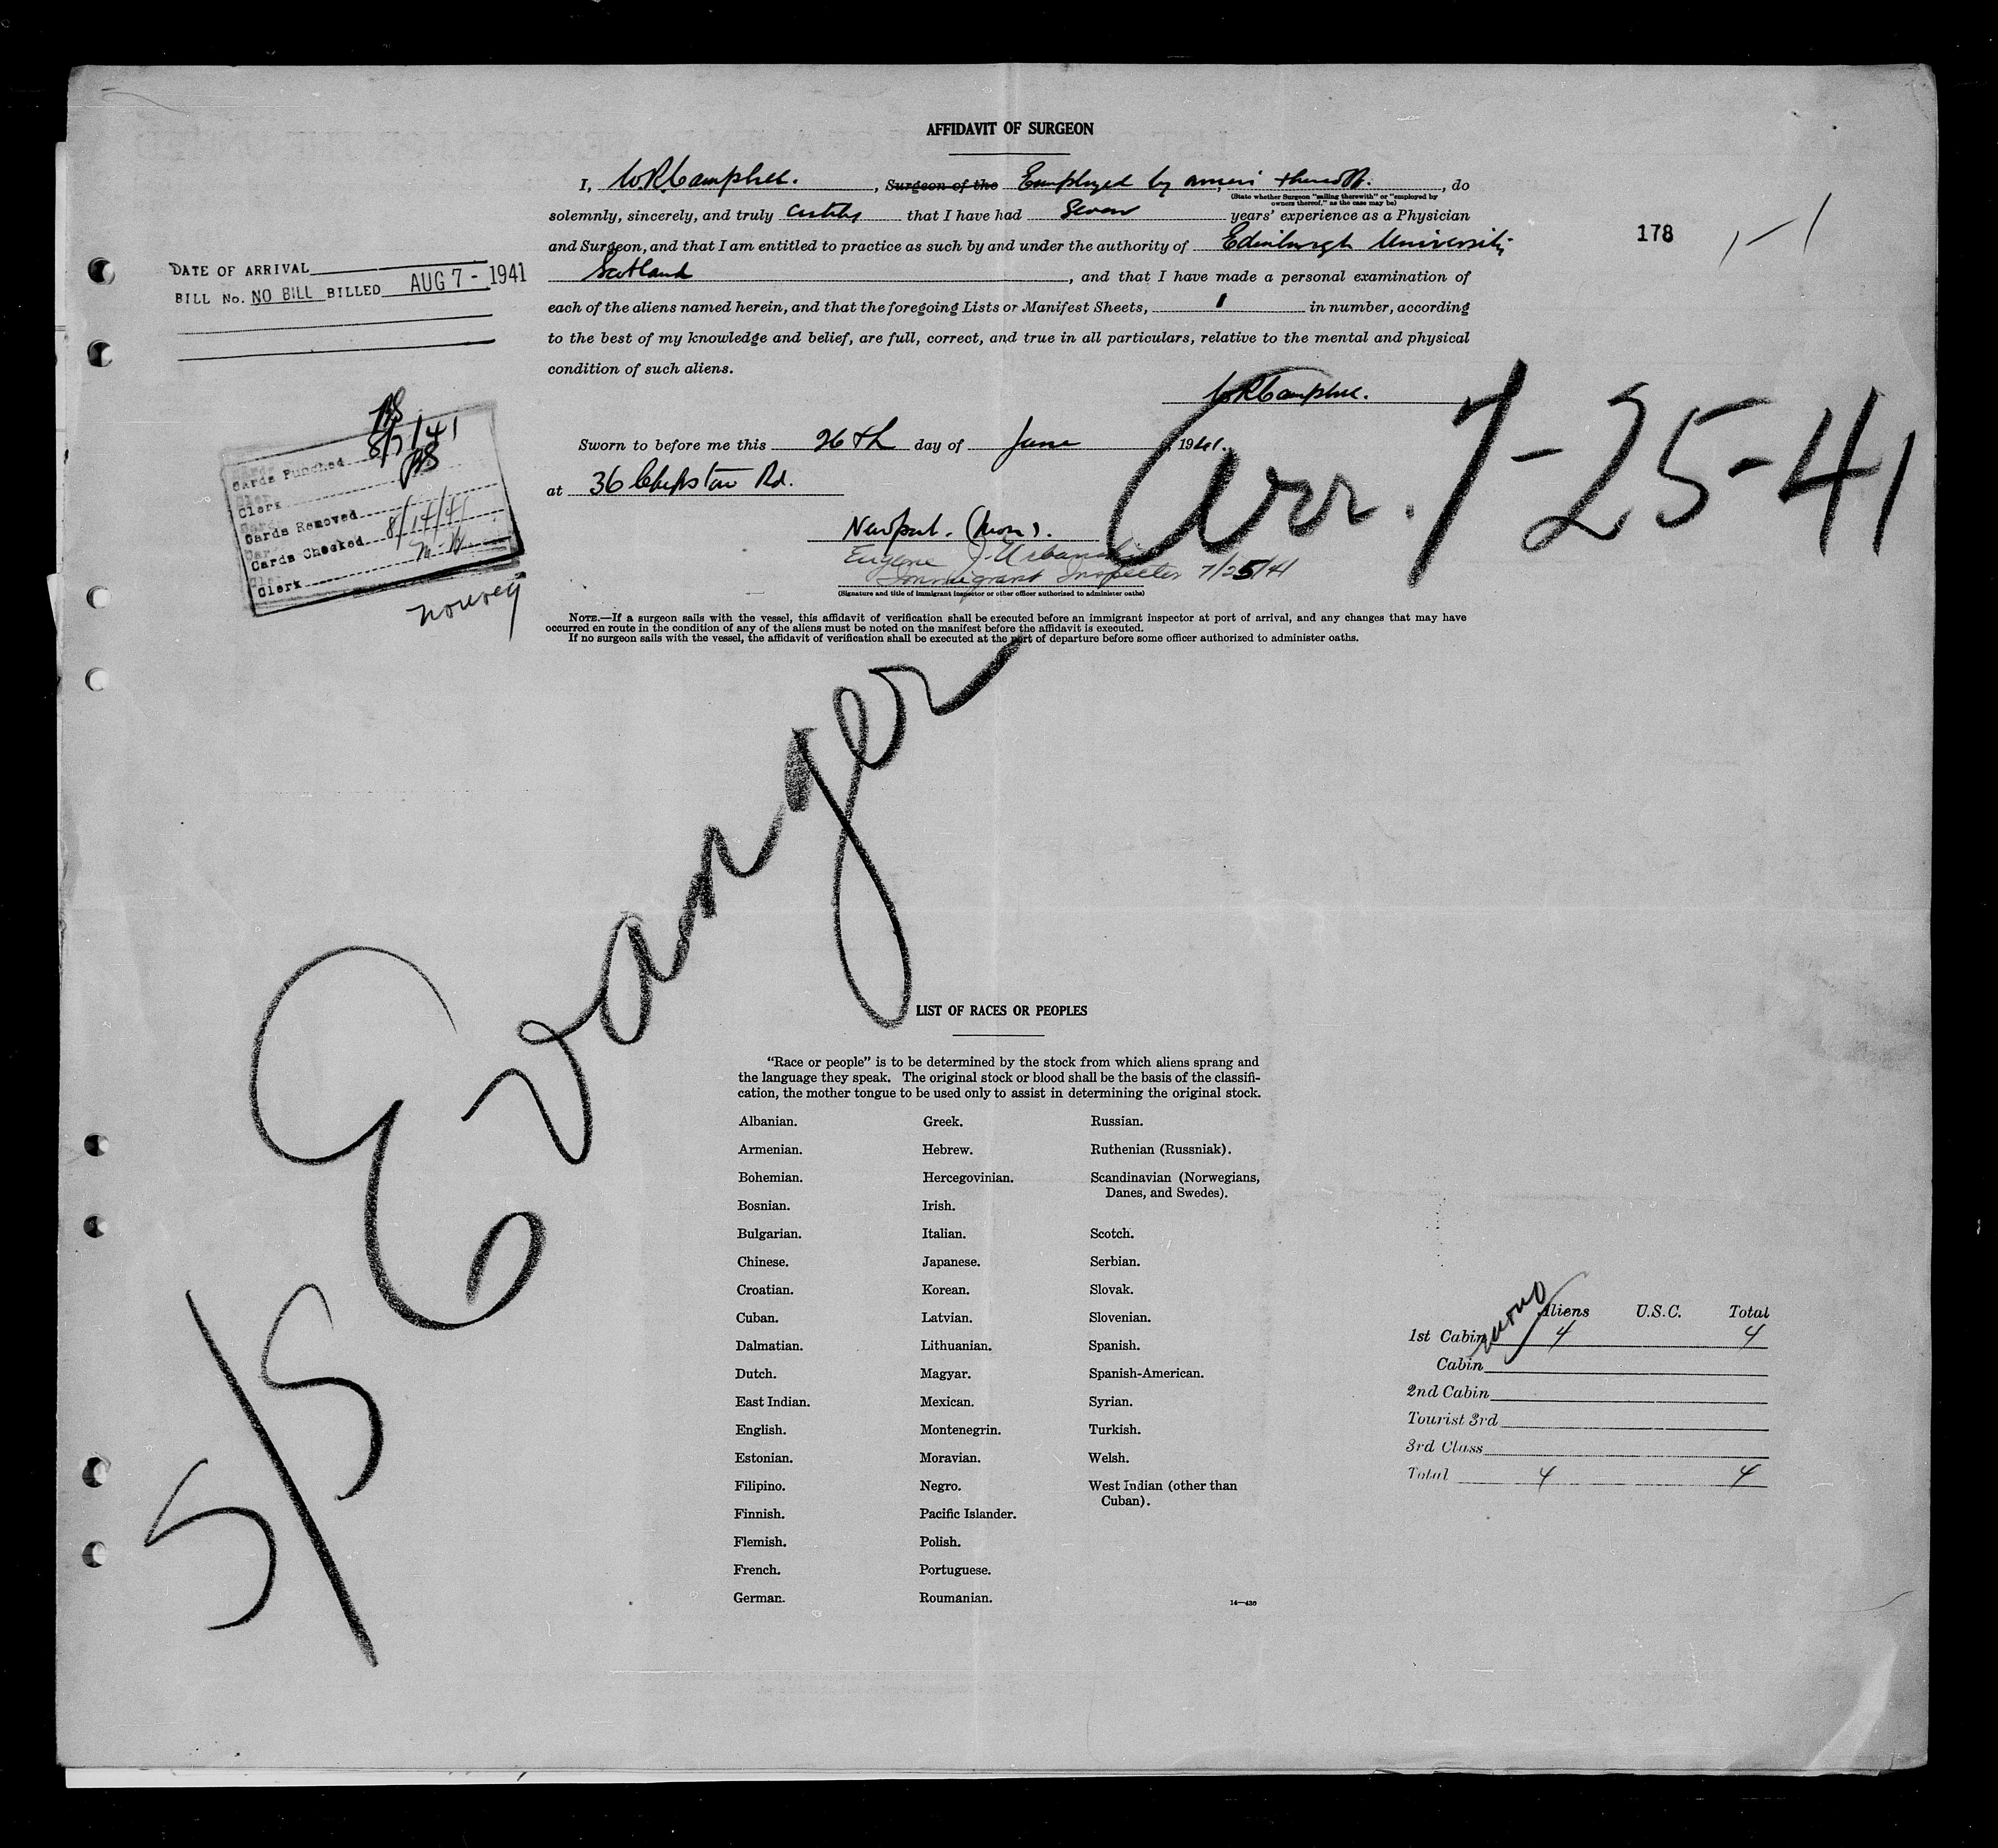 AFFIDAVIT OF SURGEON
I, W.R. Campbell. , Surgeon of the Employed by owners thereof. , do
(State whether Surgeon "sailing therewith" or "employed by
owners thereof," as the case may be)
solemnly, sincerely, and truly certify that I have had Seven years' experience as a Physician
and Surgeon, and that I am entitled to practice as such by and under the authority of Edinburgh University
Scotland , and that I have made a personal examination of
each of the aliens named herein, and that the foregoing Lists or Manifest Sheets, 1 in number, according
to the best of my knowledge and belief, are full, correct, and true in all particulars, relative to the mental and physical
condition of such aliens.
178
DATE OF ARRIVAL
BILL No. NO BILL BILLED AUG 7 - 1941
W.R. Campbell.
Sworn to before me this 26th day of June , 1941.
at 36 Chepstow Rd.
Newport. (Mon).
Eugene J. Urbanski
Immigrant Inspector 7/25/41
(Signature and title of immigrant inspector or other officer authorized to administer oaths)
Arr. 7-25-41
Cards Punched 8/7/41
Clerk
Cards Removed
Cards Checked 8/14/41
Clerk
Norveg
NOTE.—If a surgeon sails with the vessel, this affidavit of verification shall be executed before an immigrant inspector at port of arrival, and any changes that may have
occurred en route in the condition of any of the aliens must be noted on the manifest before the affidavit is executed.
If no surgeon sails with the vessel, the affidavit of verification shall be executed at the port of departure before some officer authorized to administer oaths.
S/S Evanger
LIST OF RACES OR PEOPLES
"Race or people" is to be determined by the stock from which aliens sprang and
the language they speak. The original stock or blood shall be the basis of the classifi-
cation, the mother tongue to be used only to assist in determining the original stock.
Albanian.
Armenian.
Bohemian.
Bosnian.
Bulgarian.
Chinese.
Croatian.
Cuban.
Dalmatian.
Dutch.
East Indian.
English.
Estonian.
Filipino.
Finnish.
Flemish.
French.
German.
Greek.
Hebrew.
Hercegovinian.
Irish.
Italian.
Japanese.
Korean.
Latvian.
Lithuanian.
Magyar.
Mexican.
Montenegrin.
Moravian.
Negro.
Pacific Islander.
Polish.
Portuguese.
Roumanian.
Russian.
Ruthenian (Russniak).
Scandinavian (Norwegians,
Danes, and Swedes).
Scotch.
Serbian.
Slovak.
Slovenian.
Spanish.
Spanish-American.
Syrian.
Turkish.
Welsh.
West Indian (other than
Cuban).
14—436
Aliens U.S.C. Total
1st Cabin 4 4
Cabin
2nd Cabin
Tourist 3rd
3rd Class
Total 4 4